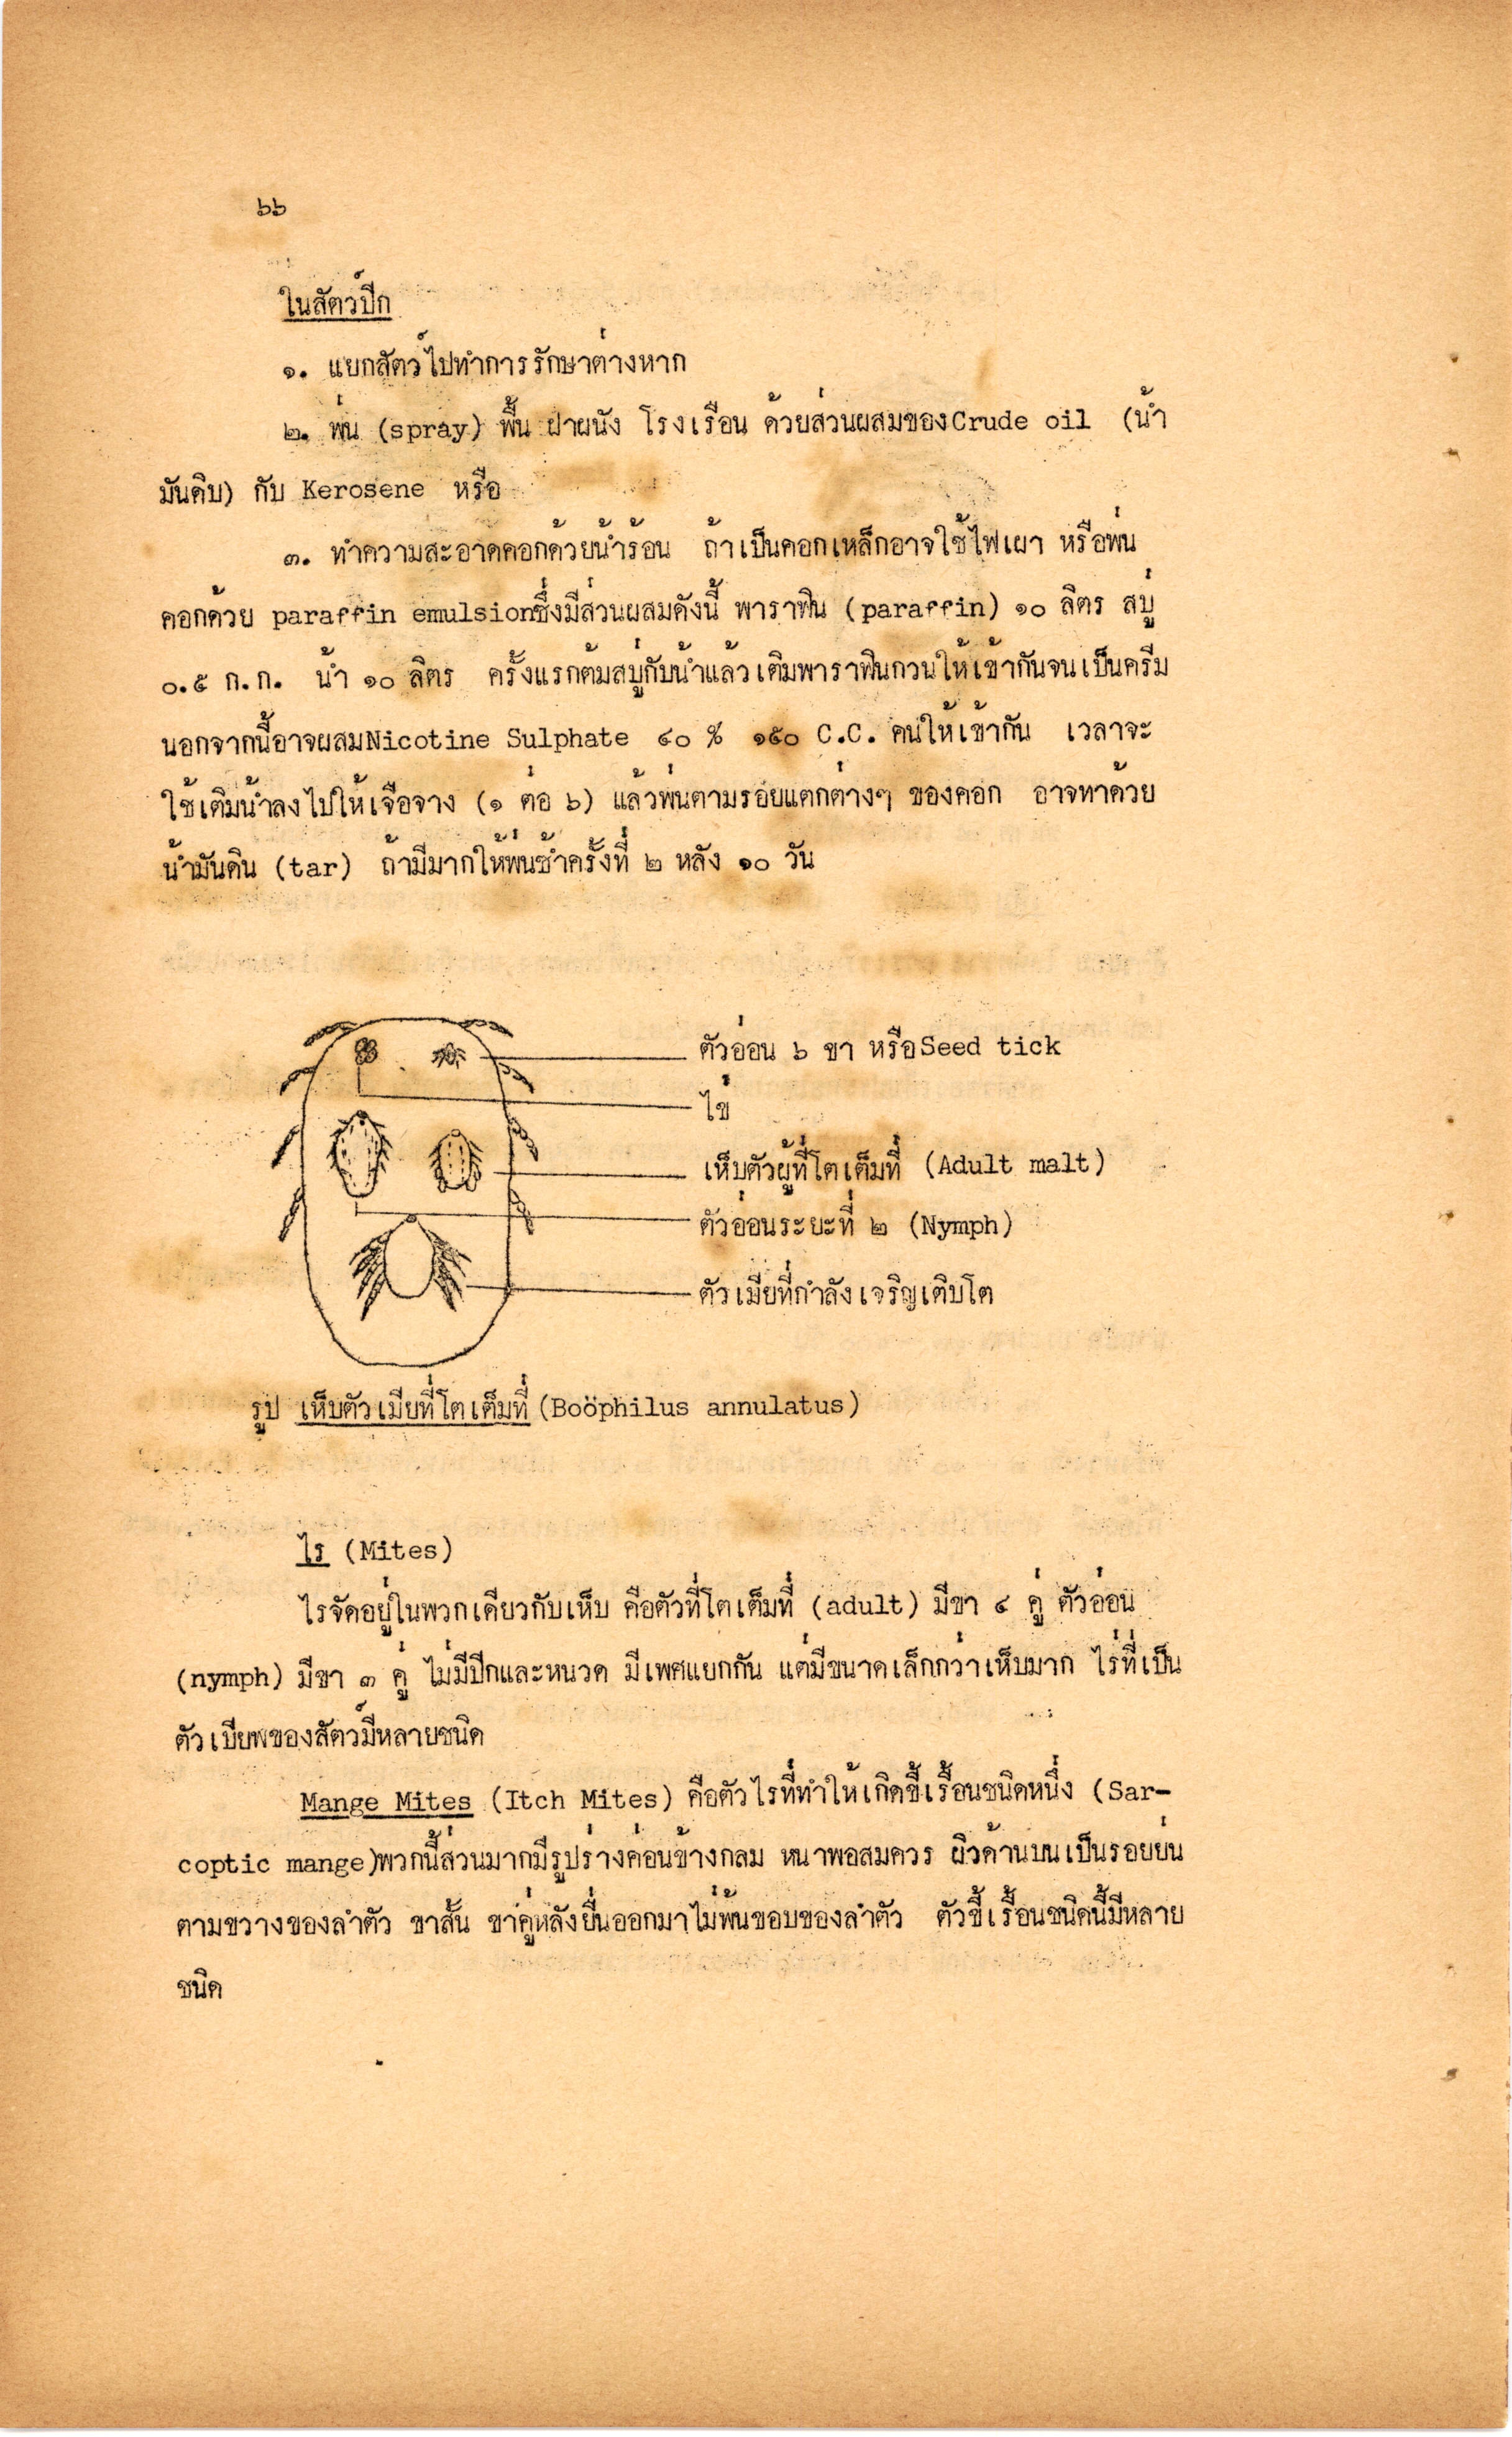 ๖๖
ในสัตว์ปีก
๑. แยกสัตว์ไปทำการรักษาต่างหาก
๒. พ่น (spray) พื้น ฝาผนัง โรงเรือน ด้วยส่วนผสมของCrude oil (น้ำ
มันดิบ) กับ Kerosene หรือ
๓. ทำความสะอาดคอกด้วยน้ำร้อน ถ้าเป็นคอกเหล็กอาจใช้ไฟเผา หรือพ่น
คอกด้วย paraffin emulsionซึ่งมีส่วนผสมดังนี้ พาราฟิน (paraffin) ๑๐ ลิตร สบู่
๐.๕ ก.ก. น้ำ ๑๐ ลิตร ครั้งแรกต้มสบู่กับน้ำแล้วเติมพาราฟินกวนให้เข้ากันจนเป็นครีม
นอกจากนี้อาจผสมNicotine Sulphate ๔๐ % ๑๕๐ C.C. คนให้เข้ากัน เวลาจะ
ใช้เติมน้ำลงไปให้เจือจาง (๑ ต่อ ๖) แล้วพ่นตามรอยแตกต่างๆ ของคอก อาจทาด้วย
น้ำมันดิน (tar) ถ้ามีมากให้พ่นซ้ำครั้งที่ ๒ หลัง ๑๐ วัน
ตัวอ่อน ๖ ขา หรือSeed tick
ไข่
เห็บตัวผู้ที่โตเต็มที่ (Adult malt)
ตัวอ่อนระยะที่ ๒ (Nymph)
ตัวเมียที่กำลังเจริญเติบโต
รูป เห็บตัวเมียที่โตเต็มที่ (Boöphilus annulatus)
ไร (Mites)
ไรจัดอยู่ในพวกเดียวกับเห็บ คือตัวที่โตเต็มที่ (adult) มีขา ๔ คู่ ตัวอ่อน
(nymph) มีขา ๓ คู่ ไม่มีปีกและหนวด มีเพศแยกกัน แต่มีขนาดเล็กกว่าเห็บมาก ไร่ที่เป็น
ตัวเบียฬของสัตว์มีหลายชนิด
Mange Mites (Itch Mites) คือตัวไรที่ทำให้เกิดขี้เรื้อนชนิดหนึ่ง (Sar-
coptic mange)พวกนี้ส่วนมากมีรูปร่างค่อนข้างกลม หนาพอสมควร ผิวด้านบนเป็นรอยย่น
ตามขวางของลำตัว ขาสั้น ขาคู่หลังยื่นออกมาไม่พ้นขอบของลำตัว ตัวขี้เรื้อนชนิดนี้มีหลาย
ชนิด